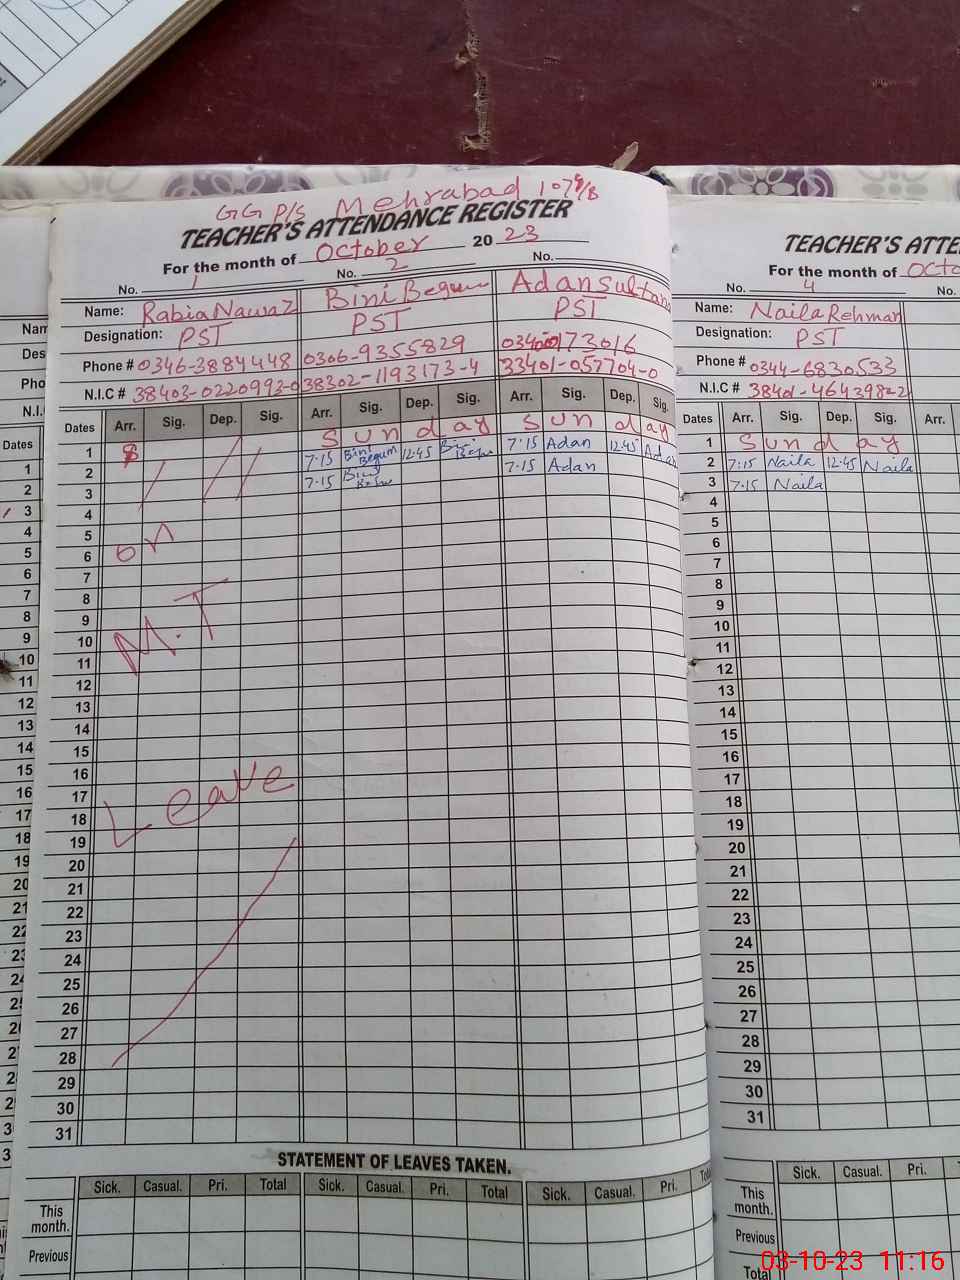 GG P/S Mehrabad 107 S/B
TEACHER'S ATTENDANCE REGISTER
For the month of October 20 23
No. 1 No. 2 No.
Name: Rabia Nawaz Bini Begum Adan Sultana
Designation: PST PST PST
Phone # 0346-3884448 0306-9355829
N.I.C # 38403-0220992-0 38302-1193173-4 33401-057704-0
Dates Arr. Sig. Dep. Sig. Arr. Sig. Dep. Sig. Arr. Sig. Dep. Sig.
1 Sunday Sunday
2 7-15 Bini Begum 12-45 Bini 7-15 Adan 12-45 Adan
3 7-15 Bini 7-15 Adan
4
5
6
on
7
8
9
10
M.T
11
12
13
14
15
16
17
18
Leave
19
20
21
22
23
24
25
26
27
28
29
30
31
STATEMENT OF LEAVES TAKEN.
Sick. Casual. Pri. Total Sick. Casual. Pri. Total Sick. Casual. Pri. Total
This month.
Previous
TEACHER'S ATTE
For the month of Octo
No. 4 No.
Name: Naila Rehman
Designation: PST
Phone # 0344-6830533
N.I.C #
Dates Arr. Sig. Dep. Sig. Arr.
1 Sunday
2 7:15 Naila 12-45 Naila
3 7-15 Naila
4
5
6
7
8
9
10
11
12
13
14
15
16
17
18
19
20
21
22
23
24
25
26
27
28
29
30
31
Sick. Casual. Pri.
This month.
Previous
Total
Nam
Des
Pho
N.I.
Dates
1
2
3
4
5
6
7
8
9
10
11
12
13
14
15
16
17
18
19
03-10-23 11:16